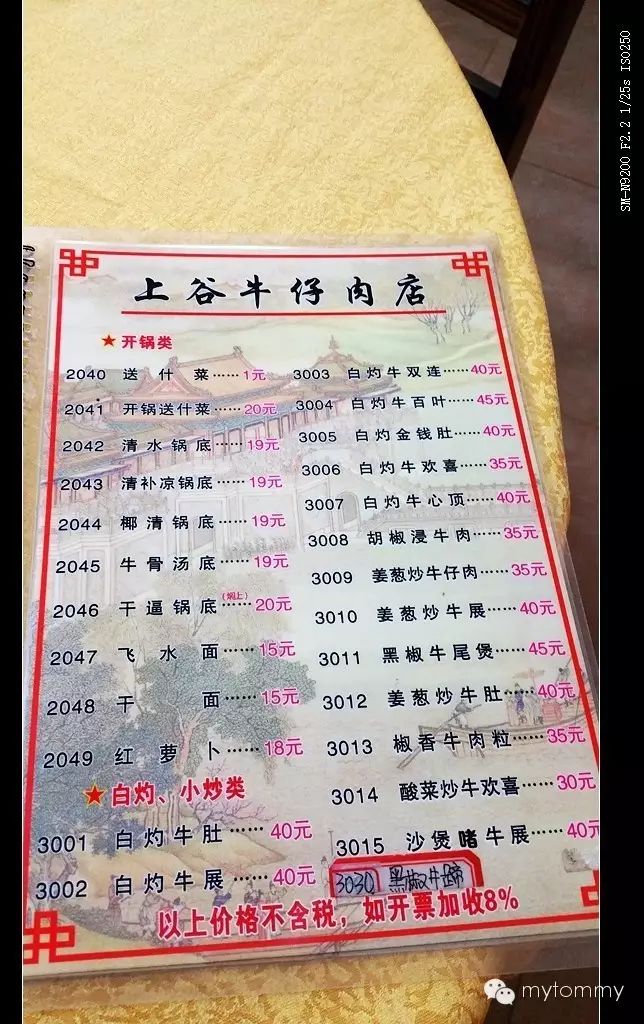 SM-N9200 F2.2 1/25s ISO250
上谷牛仔肉店
★开锅类
2040 送什菜……1元
2041 开锅送什菜……20元
2042 清水锅底……19元
2043 清补凉锅底……19元
2044 椰清锅底……19元
2045 牛骨汤底……19元
2046 干逼锅底(焗上)……20元
2047 飞水面……15元
2048 干面……15元
2049 红萝卜……18元
★白灼、小炒类
3001 白灼牛肚……40元
3002 白灼牛展……40元
3003 白灼牛双连……40元
3004 白灼牛百叶……45元
3005 白灼金钱肚……40元
3006 白灼牛欢喜……35元
3007 白灼牛心顶……40元
3008 胡椒浸牛肉……35元
3009 姜葱炒牛仔肉……35元
3010 姜葱炒牛展……40元
3011 黑椒牛尾煲……45元
3012 姜葱炒牛肚……40元
3013 椒香牛肉粒……35元
3014 酸菜炒牛欢喜……30元
3015 沙煲啫牛展……40元
3030 黑椒牛蹄
以上价格不含税，如开票加收8%
mytommy